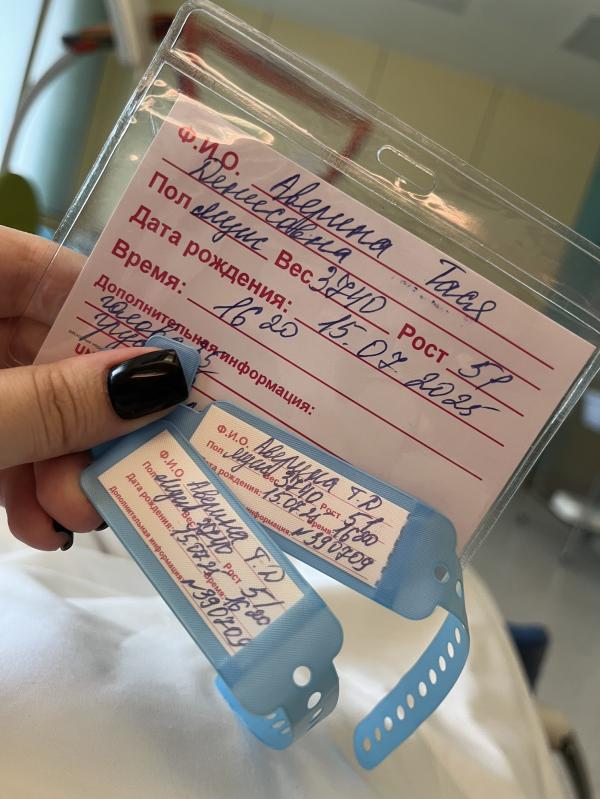 Ф.И.О. Аверина Тася
Денисовна
Пол муж Вес 3740 Рост 51
Дата рождения: 15.07.2025
Время: 16 20
Дополнительная информация:
Ф.И.О. Аверина Т.Д
Пол муж Вес 3740 Рост 51
Дата рождения: 15.07.25 Время: 16 20
Дополнительная информация: №390209
Ф.И.О. Аверина Т.Д
муж Вес 3740 Рост 51
рождения: 15.07.25 Время: 16 20
информация: №390209